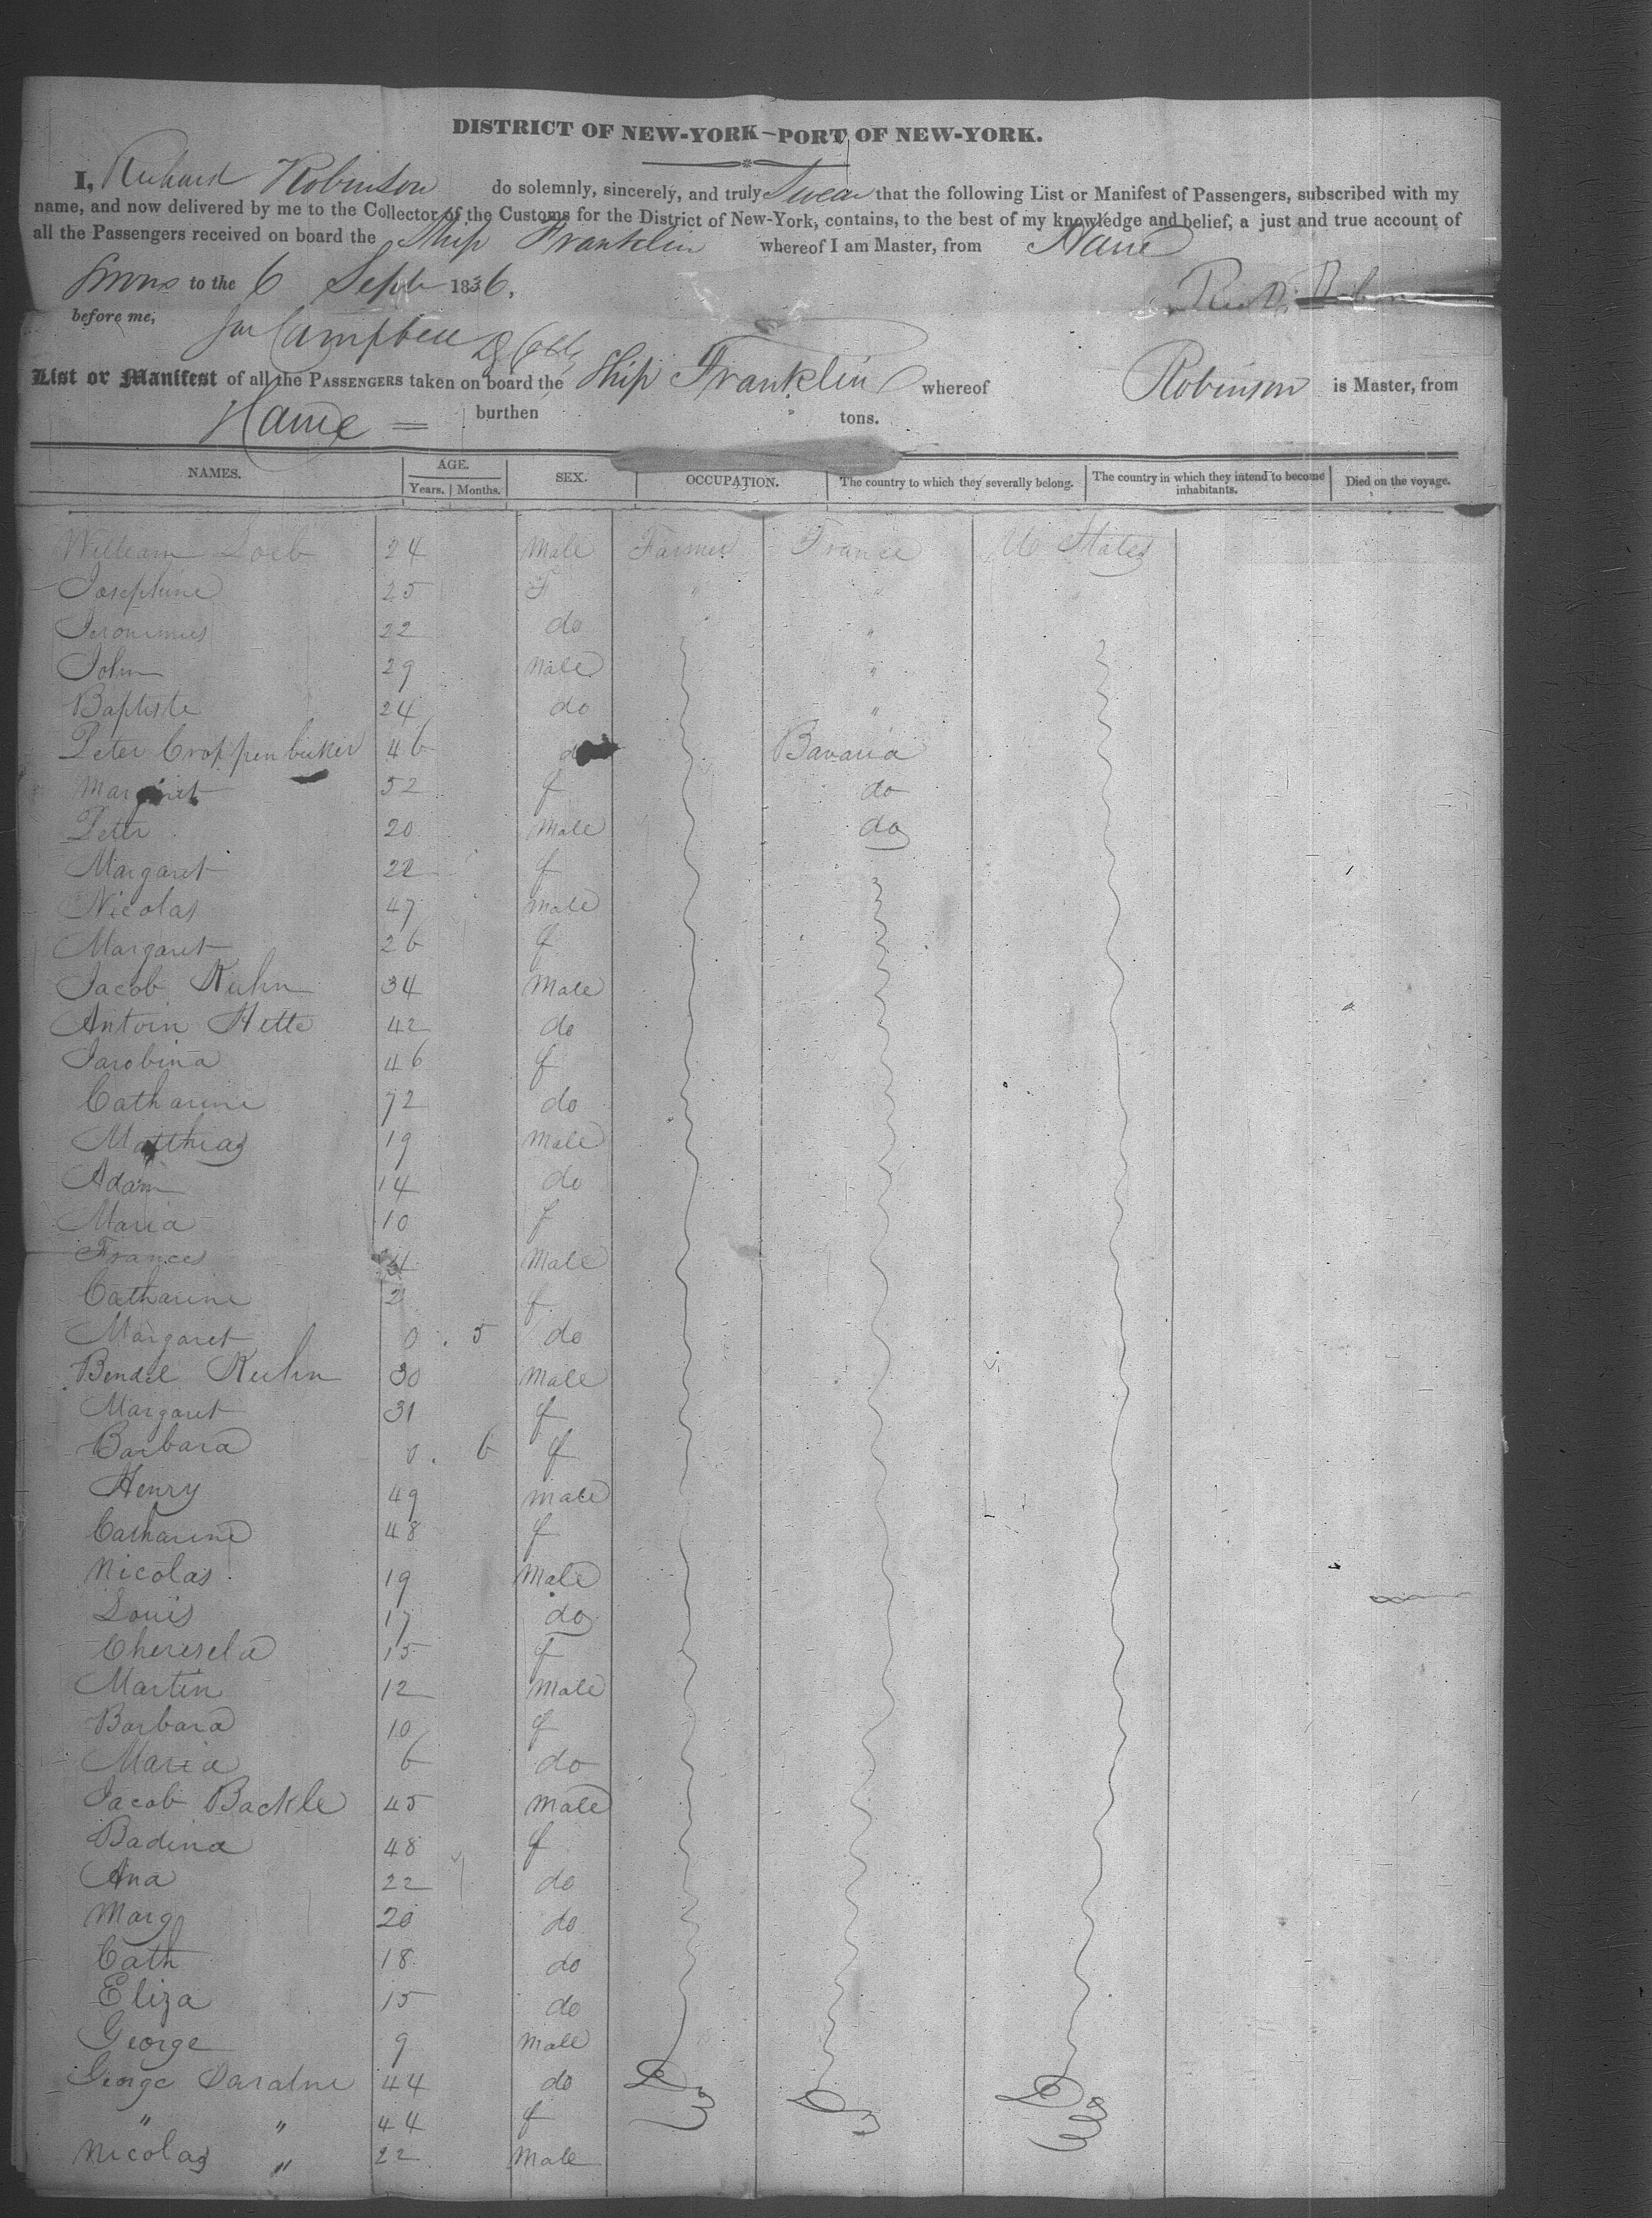 DISTRICT OF NEW-YORK—PORT OF NEW-YORK.
I, Richard Robinson do solemnly, sincerely, and truly Swear that the following List or Manifest of Passengers, subscribed with my
name, and now delivered by me to the Collector of the Customs for the District of New-York, contains, to the best of my knowledge and belief, a just and true account of
all the Passengers received on board the Ship Franklin whereof I am Master, from Havre
Sworn to the 6 Sept 1836.
before me, Campbell
List or Manifest of all the PASSENGERS taken on board the Ship Franklin whereof Robinson is Master, from
Havre burthen tons.
NAMES. AGE. SEX. OCCUPATION. The country to which they severally belong. The country in which they intend to become inhabitants. Died on the voyage.
Years. Months.
William Loeb 24 Male Farmer France U States
Josephine 25 F " "
Jeronimus 22 do " "
John 29 Male "
Baptiste 24 do "
Peter Croppenbucker 46 do Bavaria
Margaret 52 f do
Peter 20 Male do
Margaret 22 f
Nicolas 47 Male
Margaret 26 f
Jacob Kuhn 34 Male
Antoin Hette 42 do
Jarobina 46 f
Catharine 72 do
Matthias 19 Male
Adam 14 do
Maria 10 f
Frances Male
Catharine 2 f
Margaret 0 . 5 do
Bendel Kuhn 30 Male
Margaret 31 f
Barbara 0 . 6 f
Henry 49 Male
Catharine 48 f
Nicolas 19 Male
Louis 17 do
Cheresela 15 f
Martin 12 Male
Barbara 10 f
Maria 6 do
Jacob Backle 45 Male
Badina 48 f
Ana 22 do
Marg 20 do
Cath 18 do
Eliza 15 do
George 9 Male
George Daralne 44 do Do Do Do
" " 44 f
Nicolas " 22 Male